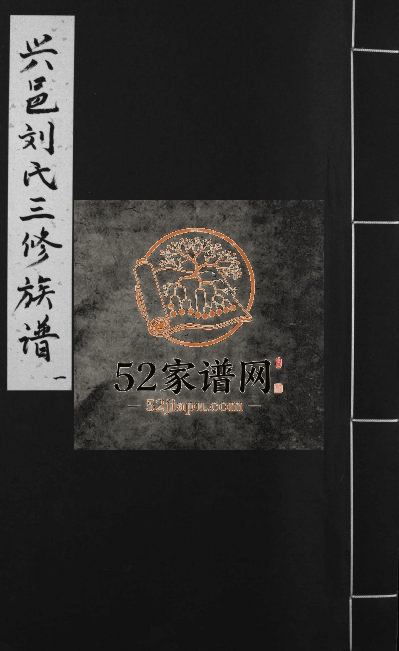 兴邑刘氏三修族谱
一
52家谱网
52jiapu.com